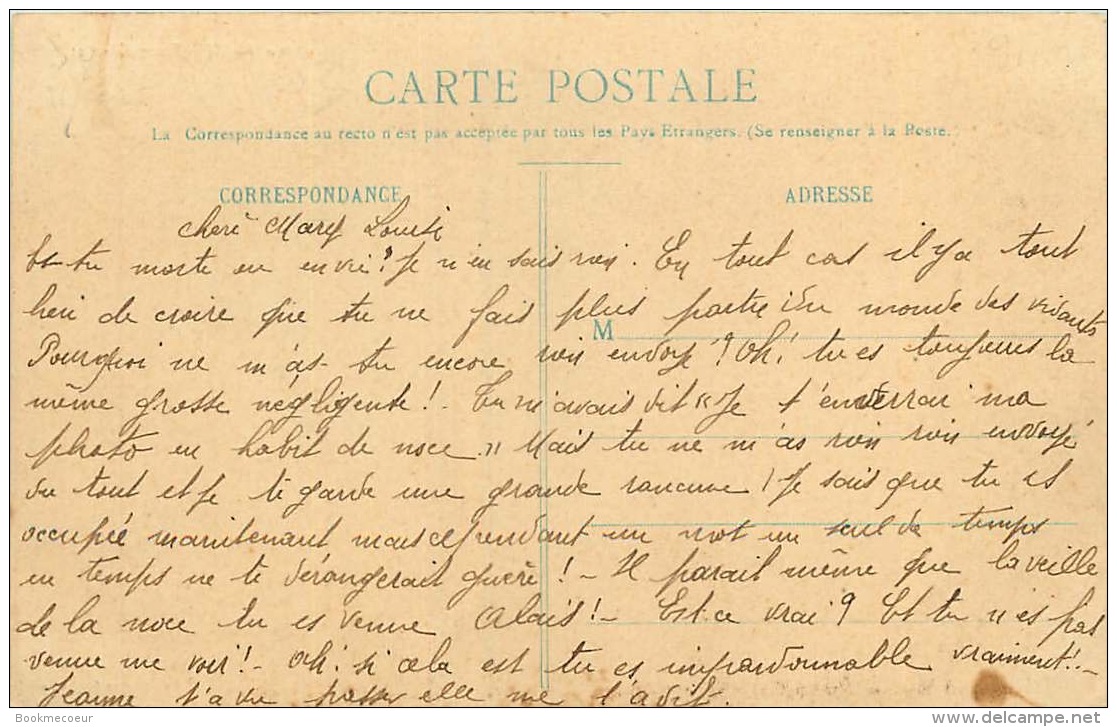 CARTE POSTALE
La Correspondance au recto n'est pas acceptée par tous les Pays Etrangers. (Se renseigner à la Poste.)
CORRESPONDANCE
ADRESSE
M
Chère Mary Louise
Es-tu morte ou en vie? Je n'en sais rien. En tout cas il y a tout
lieu de croire que tu ne fais plus partie du monde des vivants
Pourquoi ne m'as-tu encore rien envoyé? Oh! tu es toujours la
même grosse négligente! Tu m'avais dit "Je t'enverrai ma
photo en habit de noce." Mais tu ne m'as rien rien envoyé
du tout et je te garde une grande rancune! Je sais que tu es
occupée maintenant mais cependant un mot un seul de temps
en temps ne te dérangerait guère! - Il parait même que la veille
de la noce tu es venue Alais! - Est-ce vrai? Et tu n'es pas
venue me voir! - Oh! si cela est tu es impardonnable vraiment! -
Jeanne t'a vu passer elle me l'a dit.
Bookmecoeur
www.delcampe.net